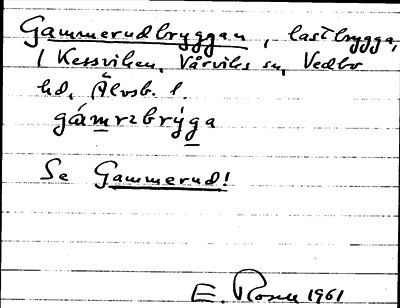 Gammerudbryggan, lastbrygga,
i Kessviken, Vårviks sn, Vedbo
hd, Älvsb. l.
gámrzbrýga
Se Gammerud!
E. Rosén 1961